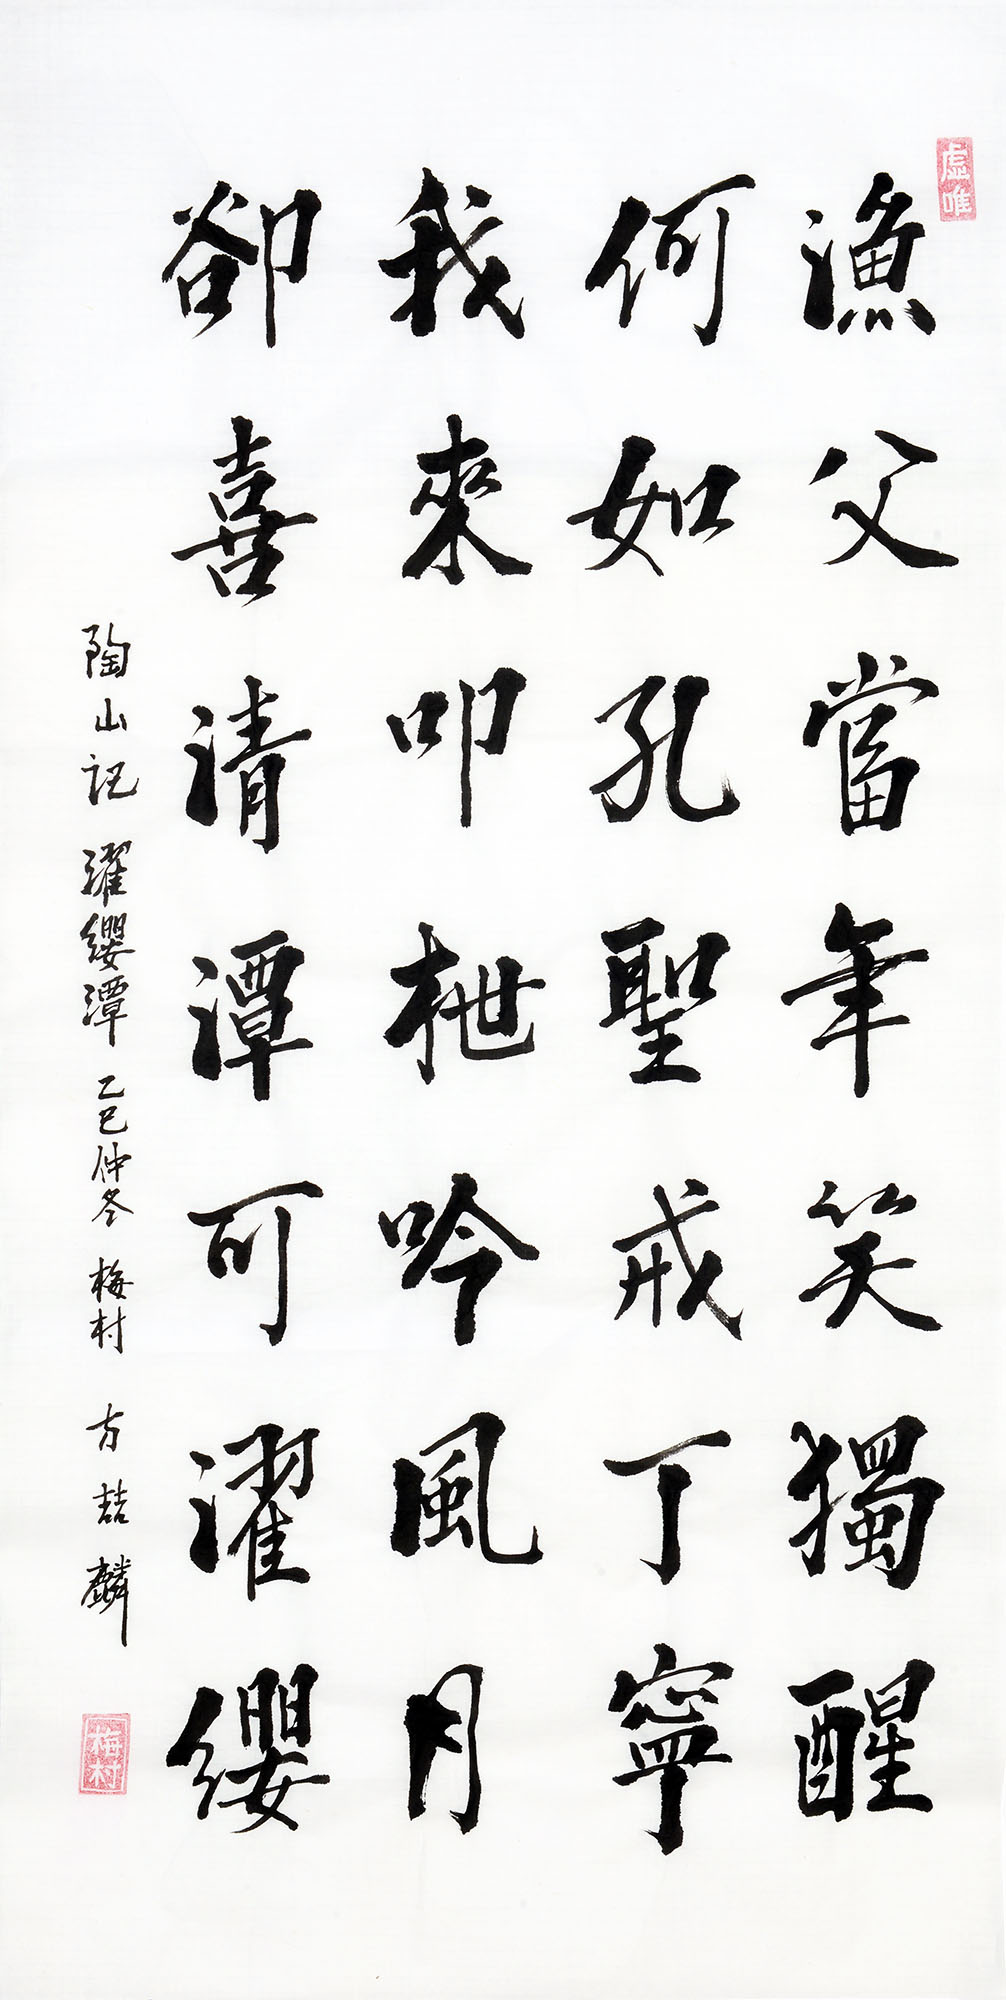 漁父當年笑獨醒
何如孔聖戒丁寧
我來叩枻吟風月
卻喜清潭可濯纓
陶山記 濯纓潭 乙巳仲冬 梅村 方喆麟
梅村